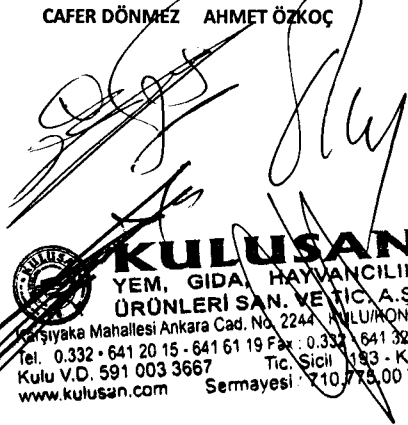 CAFER DÖNMEZ AHMET ÖZKOÇ
KULUSAN
KULUSAN
YEM, GIDA, HAYVANCILI
ÜRÜNLERİ SAN. VE TİC. A.Ş
Karşıyaka Mahallesi Ankara Cad. No. 2244 KULU/KON
Tel. 0.332 • 641 20 15 - 641 61 19 Fax : 0.332 • 641 32
Kulu V.D. 591 003 3667 Tic. Sicil 193 - K
www.kulusan.com Sermayesi : 710.775.00